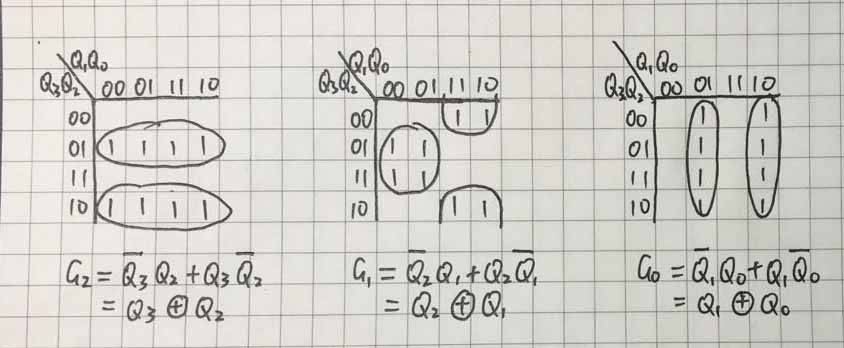 Q₁Q₀
Q₃Q₂ 00 01 11 10
00
01 1 1 1 1
11
10 1 1 1 1
G₂ = Q̅₃Q₂ + Q₃Q̅₂
= Q₃ ⊕ Q₂
Q₁Q₀
Q₃Q₂ 00 01 11 10
00 1 1
01 1 1
11 1 1
10 1 1
G₁ = Q̅₂Q₁ + Q₂Q̅₁
= Q₂ ⊕ Q₁
Q₁Q₀
Q₃Q₂ 00 01 11 10
00 1 1
01 1 1
11 1 1
10 1 1
G₀ = Q̅₁Q₀ + Q₁Q̅₀
= Q₁ ⊕ Q₀